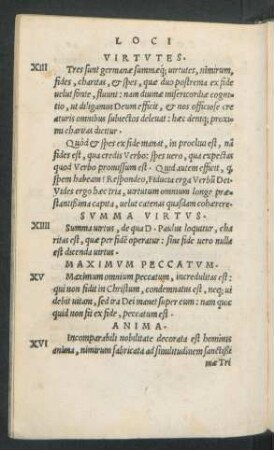 LOCI
VIRTVTES.
XIII Tres sunt germanæ summæq; uirtutes, nimirum,
fides, charitas, & spes, quæ duæ postremæ ex fide
uelut fonte, fluunt: nam diuinæ misericordiæ cognitio,
ut diligamus Deum efficit, & nos officiose creaturis
omnibus subiectos deleuat: hæc dentq; proximi
charitas dicitur.
Quòd & spes ex fide manat, in procliui est, nã
fides est, qua credis Verbo: spes uero, qua expectas
quod Verbo promissum est. Quid autem efficit, q̃
spem habeam? Respondeo, Fiducia erga Verbũ Dei.
Vides ergo hæc tria, uirtutum omnium longe præstantissima
capita, uelut catenas quasdam cohærere.
SVMMA VIRTVS.
XIIII Summa uirtus, de qua D. Paulus loquitur, charitas
est, quæ per fidē operatur: sine fide uero nulla
est dicenda uirtus.
MAXIMVM PECCATVM.
XV Maximum omnium peccatum, incredulitas est:
qui non fidit in Christum, condemnatus est, neq; uidebit
uitam, sed ira Dei manet super eum: nam quicquid
non fit ex fide, peccatum est.
ANIMA.
XVI Incomparabili nobilitate decorata est hominis
anima, nimirum fabricata ad similitudinem sanctissimæ
Tri